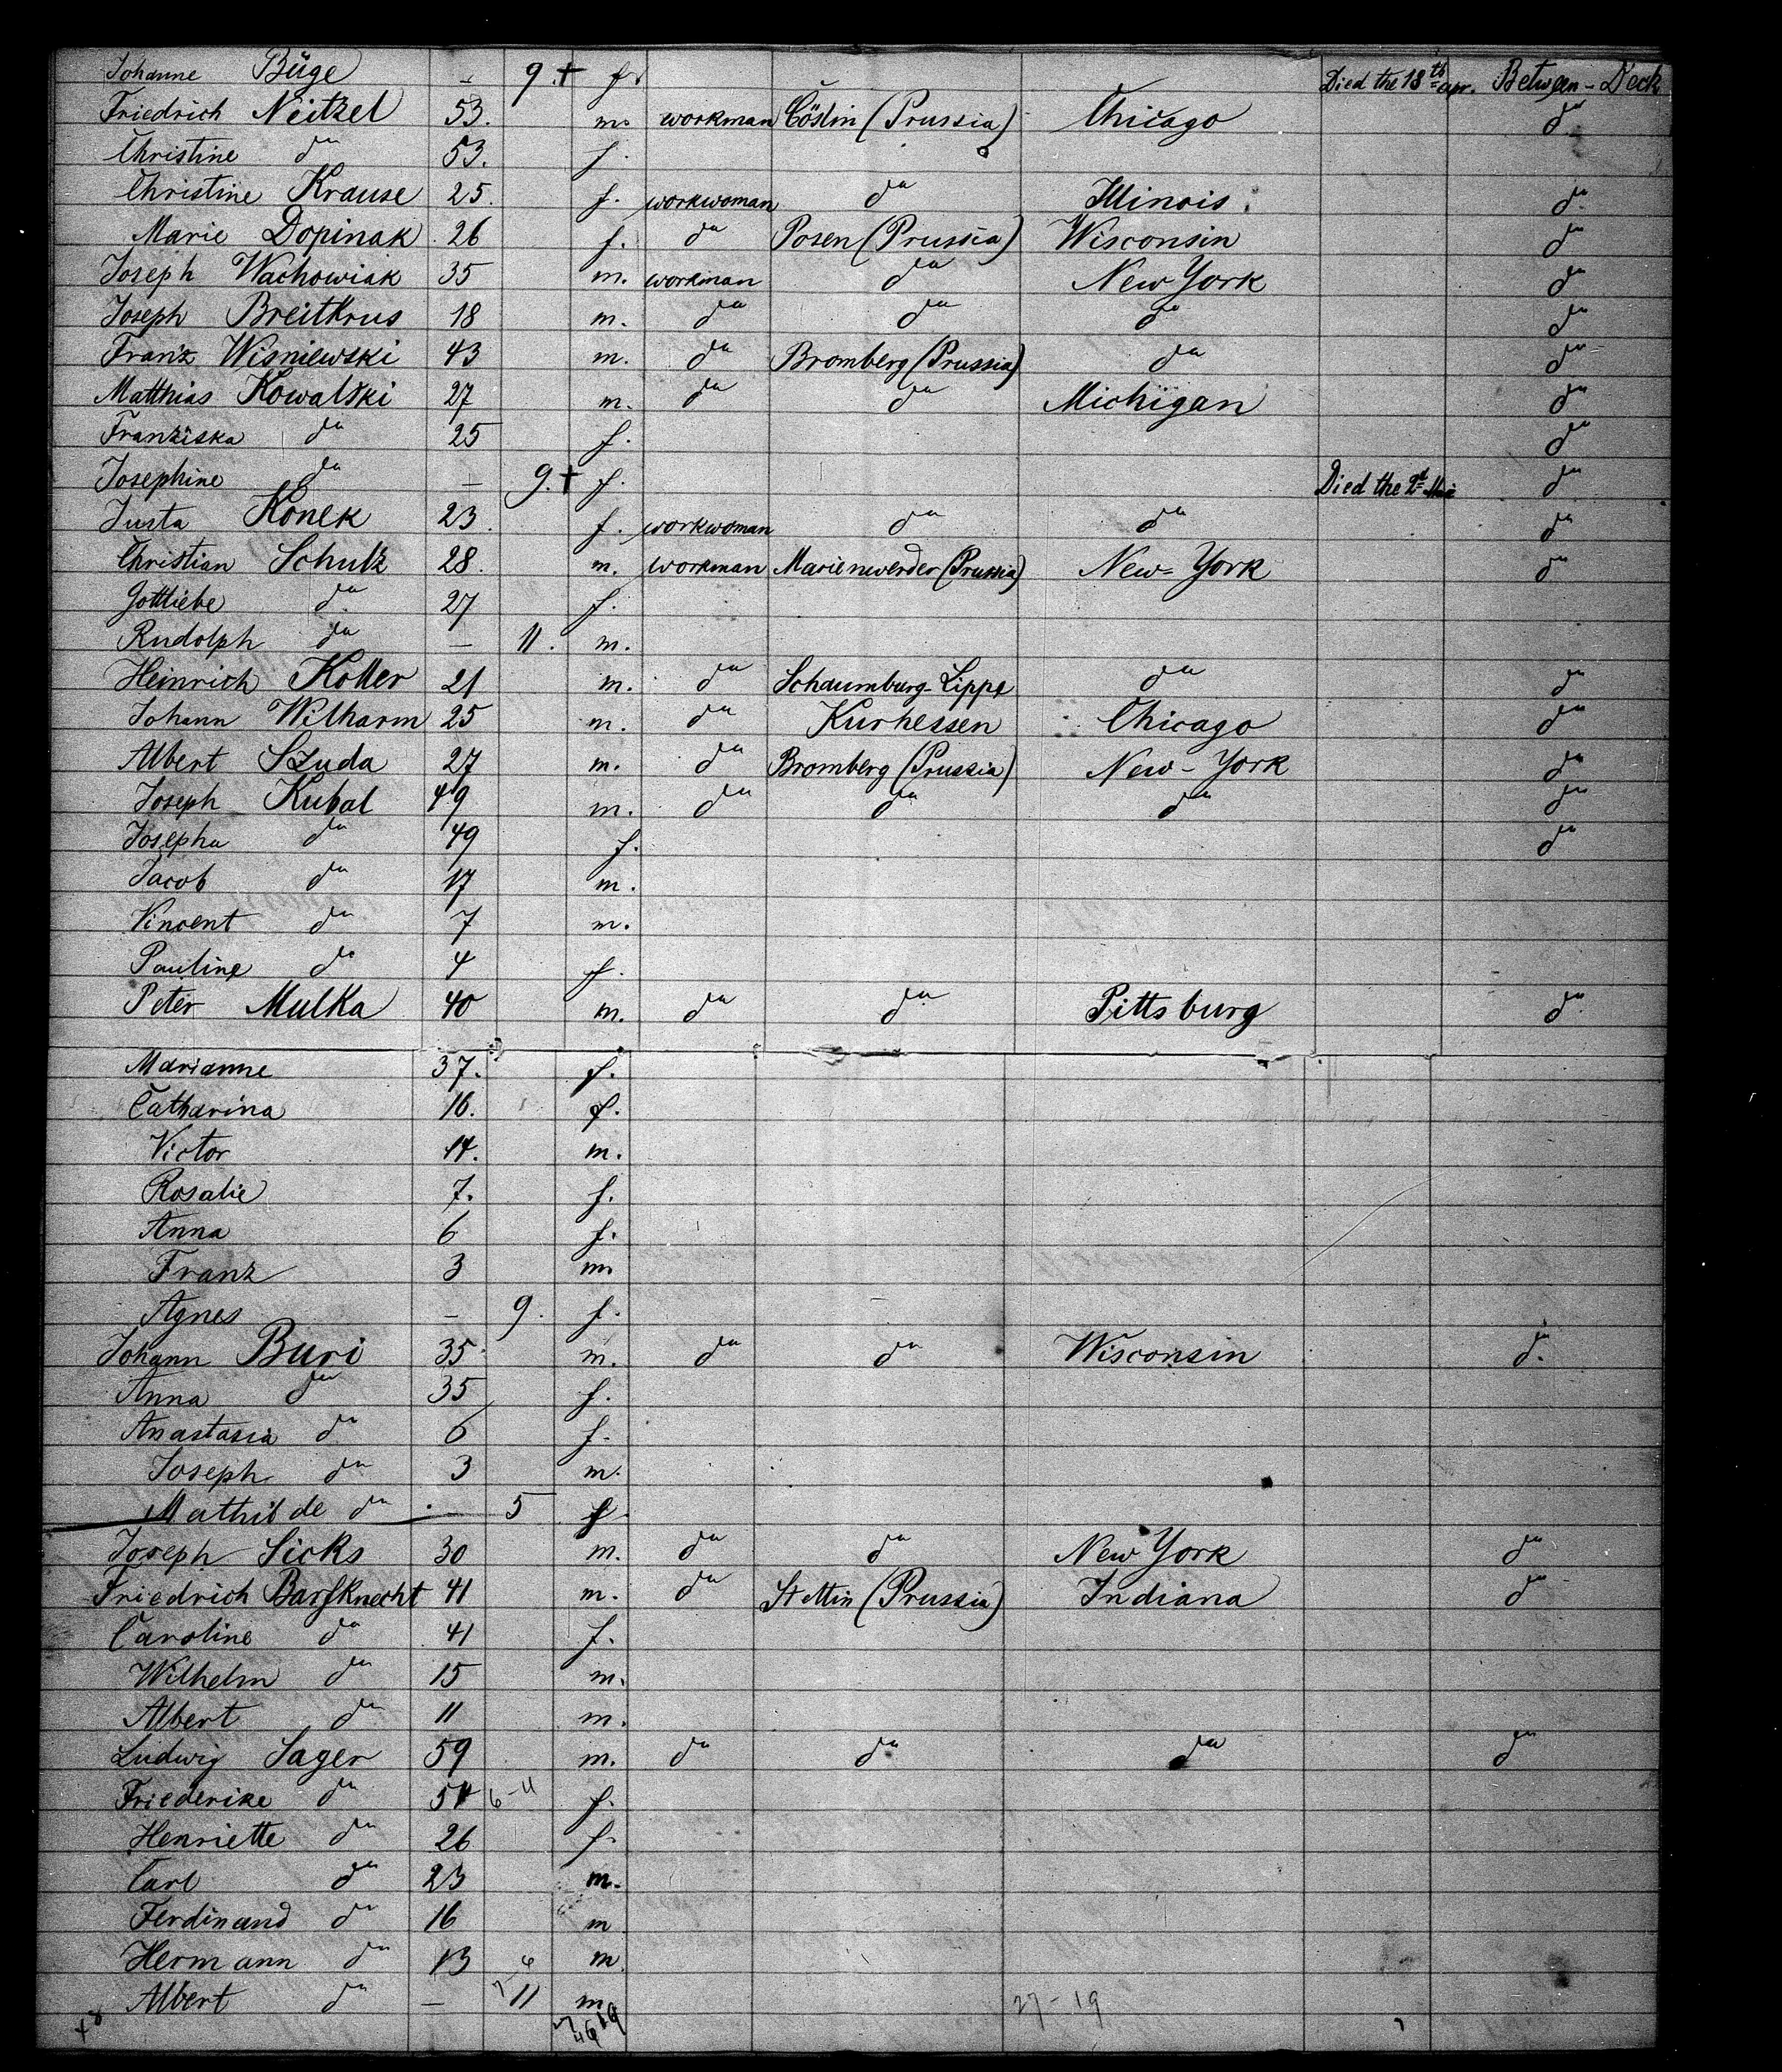 Johanne Büge – 9. † f. Died the 18th apr. Between-Deck
Friedrich Neitzel 53. m. workman Cöslin (Prussia) Chicago do
Christine do 53. f.
Christine Krause 25. f. workwoman do Illinois do
Marie Dopinak 26 f. do Posen (Prussia) Wisconsin do
Joseph Wachowiak 35 m. workman do New York do
Joseph Breitkrus 18 m. do do do do
Franz Wisniewski 43 m. do Bromberg (Prussia) do do
Matthias Kowalski 27 m. do do Michigan do
Franziska do 25 f. do
Josephine do – 9. † f. Died the 2d Mai do
Justa Konek 23. f. workwoman do do do
Christian Schulz 28. m. workman Marienwerder (Prussia) New-York do
Gottliebe do 27 f.
Rudolph do – 11. m.
Heinrich Koller 21 m. do Schaumburg-Lippe do do
Johann Wilharm 25 m. do Kurhessen Chicago do
Albert Szuda 27 m. do Bromberg (Prussia) New-York do
Joseph Kubal 49 m. do do do do
Josepha do 49 f. do
Jacob do 17 m.
Vincent do 7 m.
Pauline do 4 f.
Peter Mulka 40 m. do do Pittsburg do
Marianne 37. f.
Catharina 16. f.
Victor 14. m.
Rosalie 7. f.
Anna 6 f.
Franz 3 m
Agnes – 9. f.
Johann Buri 35 m. do do Wisconsin do
Anna do 35 f.
Anastasia do 6 f.
Joseph do 3 m.
Mathilde do – 5 f
Joseph Sicks 30 m. do do New York do
Friedrich Barfknecht 41 m. do Stettin (Prussia) Indiana do
Caroline do 41 f.
Wilhelm do 15 m.
Albert do 11 m.
Ludwig Sager 59 m. do do do do
Friederike do 54 6-11 f.
Henriette do 26 f.
Carl do 23 m.
Ferdinand do 16 m
Hermann do 13 m
Albert do – 11 m 27-19
48